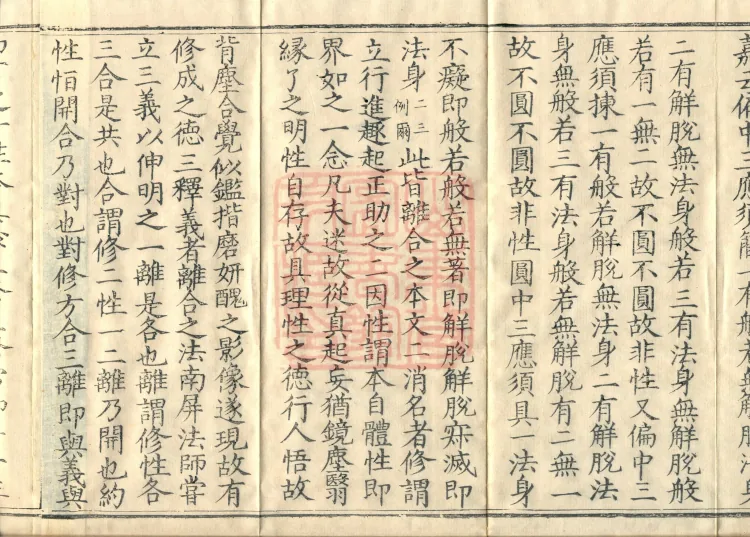 二有解脫無法身般若三有法身無解脫般
若有一無二故不圓不圓故非性又偏中三
應須揀一有般若解脫無法身二有解脫法
身無般若三有法身般若無解脫有二無一
故不圓不圓故非性圓中三應須具一法身
不癡即般若般若無著即解脫解脫寂滅即
法身二三例爾此皆離合之本文二消名者修謂
立行進趣起正助之二因性謂本自體性即
界如之一念凡夫迷故從真起妄猶鏡塵翳
緣了之明性自存故具理性之德行人悟故
背塵合覺似鑑揩磨妍醜之影像遂現故有
修成之德三釋義者離合之法南屏法師嘗
立三義以伸明之一離是各也離謂修性各
三合是共也合謂修二性一二離乃開也約
性怛開合乃對也對修方合三離即與義與